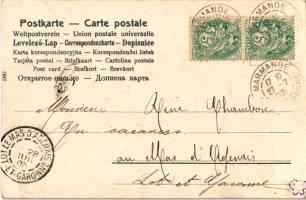 Postkarte — Carte postale
Weltpostverein — Union postale universelle
Levelező-Lap — Correspondenzkarte — Dopisnice
Karta korespondencyjna — Korespondenčni listek
Tarjeta postal — Briefkaart — Cartolina postale
Post card — Brefkort — Brevkort
Открытое письмо — Дописна карта
MARMANDE
MARMANDE
17 10
27 - 7
Monsieur René Chambore
En vacances
au Mas d'Agenais
Lot et Garonne
LE MAS-D'AGENAIS
28
JUIL
LOT-ET-GARONNE